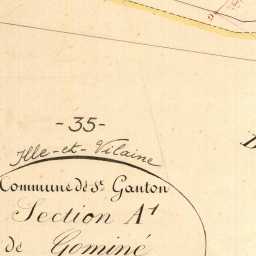 -35-
Ille-et-Vilaine
Commune de St. Ganton
Section A1
de Gominé